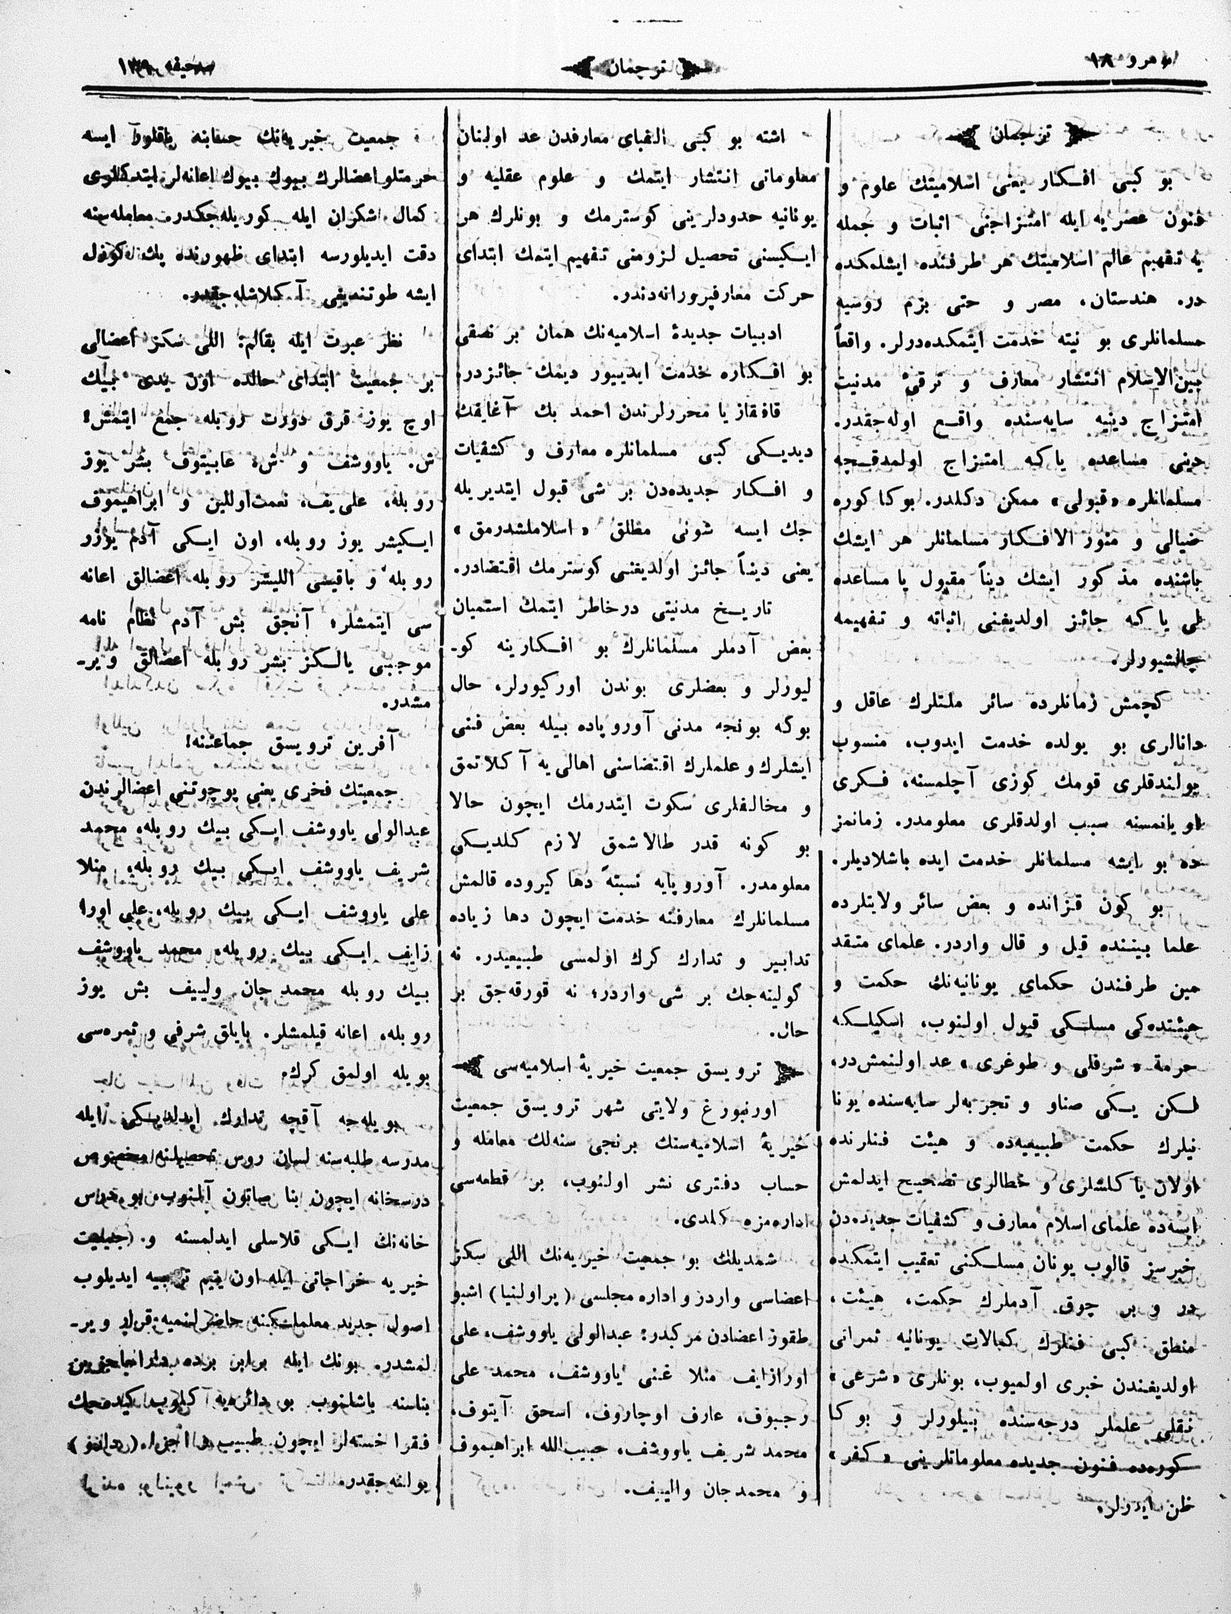 نومرو ١٨
ترجمان
صحیفه
ترجمان
بو كبی افكار یعنی اسلامیتك علوم و
فنون عصریه ایله امتزاجنی اثبات و جمله
یه تفهیم عالم اسلامیتك هر طرفنده ایشلمكده
در. هندستان، مصر و حتی بزم روسیه
مسلمانلری بو نیته خدمت ایتمكده‌درلر. واقعاً
بین‌الاسلام انتشار معارف و ترقئ مدنیت
امتزاج دینیه سایه‌سنده واقع اوله‌جقدر.
دینی مساعده یا كه امتزاج اولمدقچه
مسلمانلره «قبولی» ممكن دكلدر. بوكا كوره
ضیالی و منور الافكار مسلمانلر هر ایشك
باشنده مذكور ایشك دیناً مقبول یا مساعده
لی یا كه جائز اولدیغنی اثباته و تفهیمه
چالشیورلر.
كچمش زمانلرده سائر ملتلرك عاقل و
دانالری بو یولده خدمت ایدوب، منسوب
بولندقلری قومك كوزی آچلمسنه، فكری
اویانمسنه سبب اولدقلری معلومدر. زمانمز
ده بو ایشه مسلمانلر خدمت ایده باشلادیلر.
بو كون قزانده و بعض سائر ولایتلرده
علما بیننده قیل و قال واردر. علمای متقد
مین طرفندن حكمای یونانیه‌نك حكمت و
هیئتده‌كی مسلكی قبول اولنوب، اسكیلكه
حرمةً «شرفلی و طوغری» عد اولنمش‌در،
لكن یكی صناو و تجربه‌لر سایه‌سنده یونا
نیلرك حكمت طبیعیه‌ده و هیئت فنلرنده
اولان یاكلشلری و خطالری تصحیح ایدلمش
ایسه‌ده علمای اسلام معارف و كشفیات جدیده‌دن
خبرسز قالوب یونان مسلكنی تعقیب ایتمكده
در و بر چوق آدملرك حكمت، هیئت،
منطق كبی فنلرك كمالات یونانیه ثمراتی
اولدیغندن خبری اولمیوب، بونلری «شرعی»
نقلی علملر درجه‌سنده بیلورلر و بوكا
كوره‌ده فنون جدیده معلوماتلرینی «كفر»
ظن ایدرلر.
اشته بو كبی القبای معارفدن عد اولنان
معلوماتی انتشار ایتمك و علوم عقلیه و
یونانیه حدودلرینی كوسترمك و بونلرك هر
ایكیسنی تحصیل لزومنی تفهیم ایتمك ابتدای
حركت معارفپرورانه‌دندر.
ادبیات جدیدۀ اسلامیه‌نك همان بر نصفی
بو افكاره خدمت ایدییور دیمك جائزدر.
قافقازیا محررلرندن احمد بك آغایفك
دیدیكی كبی مسلمانلره معارف و كشفیات
و افكار جدیده‌دن بر شی قبول ایتدیریله
جك ایسه شونی مطلق «اسلاملشدرمق»
یعنی دیناً جائز اولدیغنی كوسترمك اقتضادر.
تاریخ مدنیتی درخاطر ایتمك استمیان
بعض آدملر مسلمانلرك بو افكارینه كو-
لیورلر و بعضلری بوندن اوركیورلر، حال
بوكه بونجه مدنی آوروپاده بیله بعض فنی
ایشلرك و علملرك اقتضاسنی اهالی‌یه آكلاتمق
و مخالفلری سكوت ایتدرمك ایچون حالا
بو كونه قدر طالاشمق لازم كلدیكی
معلومدر. آوروپایه نسبتهً دها كیروده قالمش
مسلمانلرك معارفنه خدمت ایچون دها زیاده
تدابیر و تدارك كرك اولمسی طبیعیدر. نه
كولینه‌جك بر شی واردر؛ نه قورقه‌جق بر
حال.
ترویسق جمعیت خیریۀ اسلامیه‌سی
اورنبورغ ولایتی شهر ترویسق جمعیت
خیریۀ اسلامیه‌سنك برنجی سنه‌لك معامله و
حساب دفتری نشر اولنوب، بر قطعه‌سی
اداره‌مزه كلدی.
شمدیلك بو جمعیت خیریه‌نك اللی سكز
اعضاسی واردر و اداره مجلسی (پراولنیا) اشبو
طقوز اعضادن مركبدر: عبدالولی یاووشف، علی
اورازایف منلا غنی یاووشف، محمد علی
رجبوف، عارف اوچاروف، اسحق آیتوف،
محمد شریف یاووشف، حبیب‌الله ابراهیموف
و محمدجان والییف.
جمعیت خیریه‌نك حسابنه باقلور ایسه
حرمتلو اعضالرك بیوك بیوك اعانه‌لر ایتدكلری
كمال شكران ایله كوریله‌جكدر. معامله‌سنه
دقت ایدیلورسه ابتدای ظهورنده پك كوزل
ایشه طوتندیغی آكلاشله‌جقدر.
نظر عبرت ایله بقالم: اللی سكز اعضالی
بر جمعیت ابتدای حالده اون یدی بیك
اوچ یوز قرق دورت روبله جمع ایتمش؛
ش. یاووشف و ش. عابیتوف بشر یوز
روبله، علی‌یف، نعمت‌اوللین و ابراهیموف
ایكیشر یوز روبله، اون ایكی آدم یوزر
روبله و باقیسی اللیشر روبله اعضالق اعانه
سی ایتمشلر؛ آنجق بش آدم نظام نامه
موجبی یالكز بشر روبله اعضالق ویر-
مشدر.
آفرین ترویسق جماعتنه!
جمعیتك فخری یعنی پوچوتنی اعضالرندن
عبدالولی یاووشف ایكی بیك روبله، محمد
شریف یاووشف ایكی بیك روبله، منلا
علی یاووشف ایكی بیك روبله، علی اورا
زایف ایكی بیك روبله، محمد یاووشف
بیك روبله محمدجان ولییف بش یوز
روبله، اعانه قیلمشلر. بایلق شرفی و ثمره‌سی
بویله اولمق كرك.
بویله‌جه آقچه تدارك ایدلدیكی ایله
مدرسه طلبه‌سنه لسان روس تحصیلنه مخصوص
درسخانه ایچون بنا صاتون آلنوب، بو درس
خانه‌نك ایكی قلاسلی ایدلمسنه و جمعیت
خیریه خراجاتی ایله اون یتیم تربیه ایدیلوب
اصول جدید معلملكینه حاضرلنمیه قرار ویر-
لمشدر. بونك ایله برابر برده
بناسنه باشلنوب بو دائره‌یه
فقرا خسته‌لر ایچون طبیب
بولنه‌جقدر.